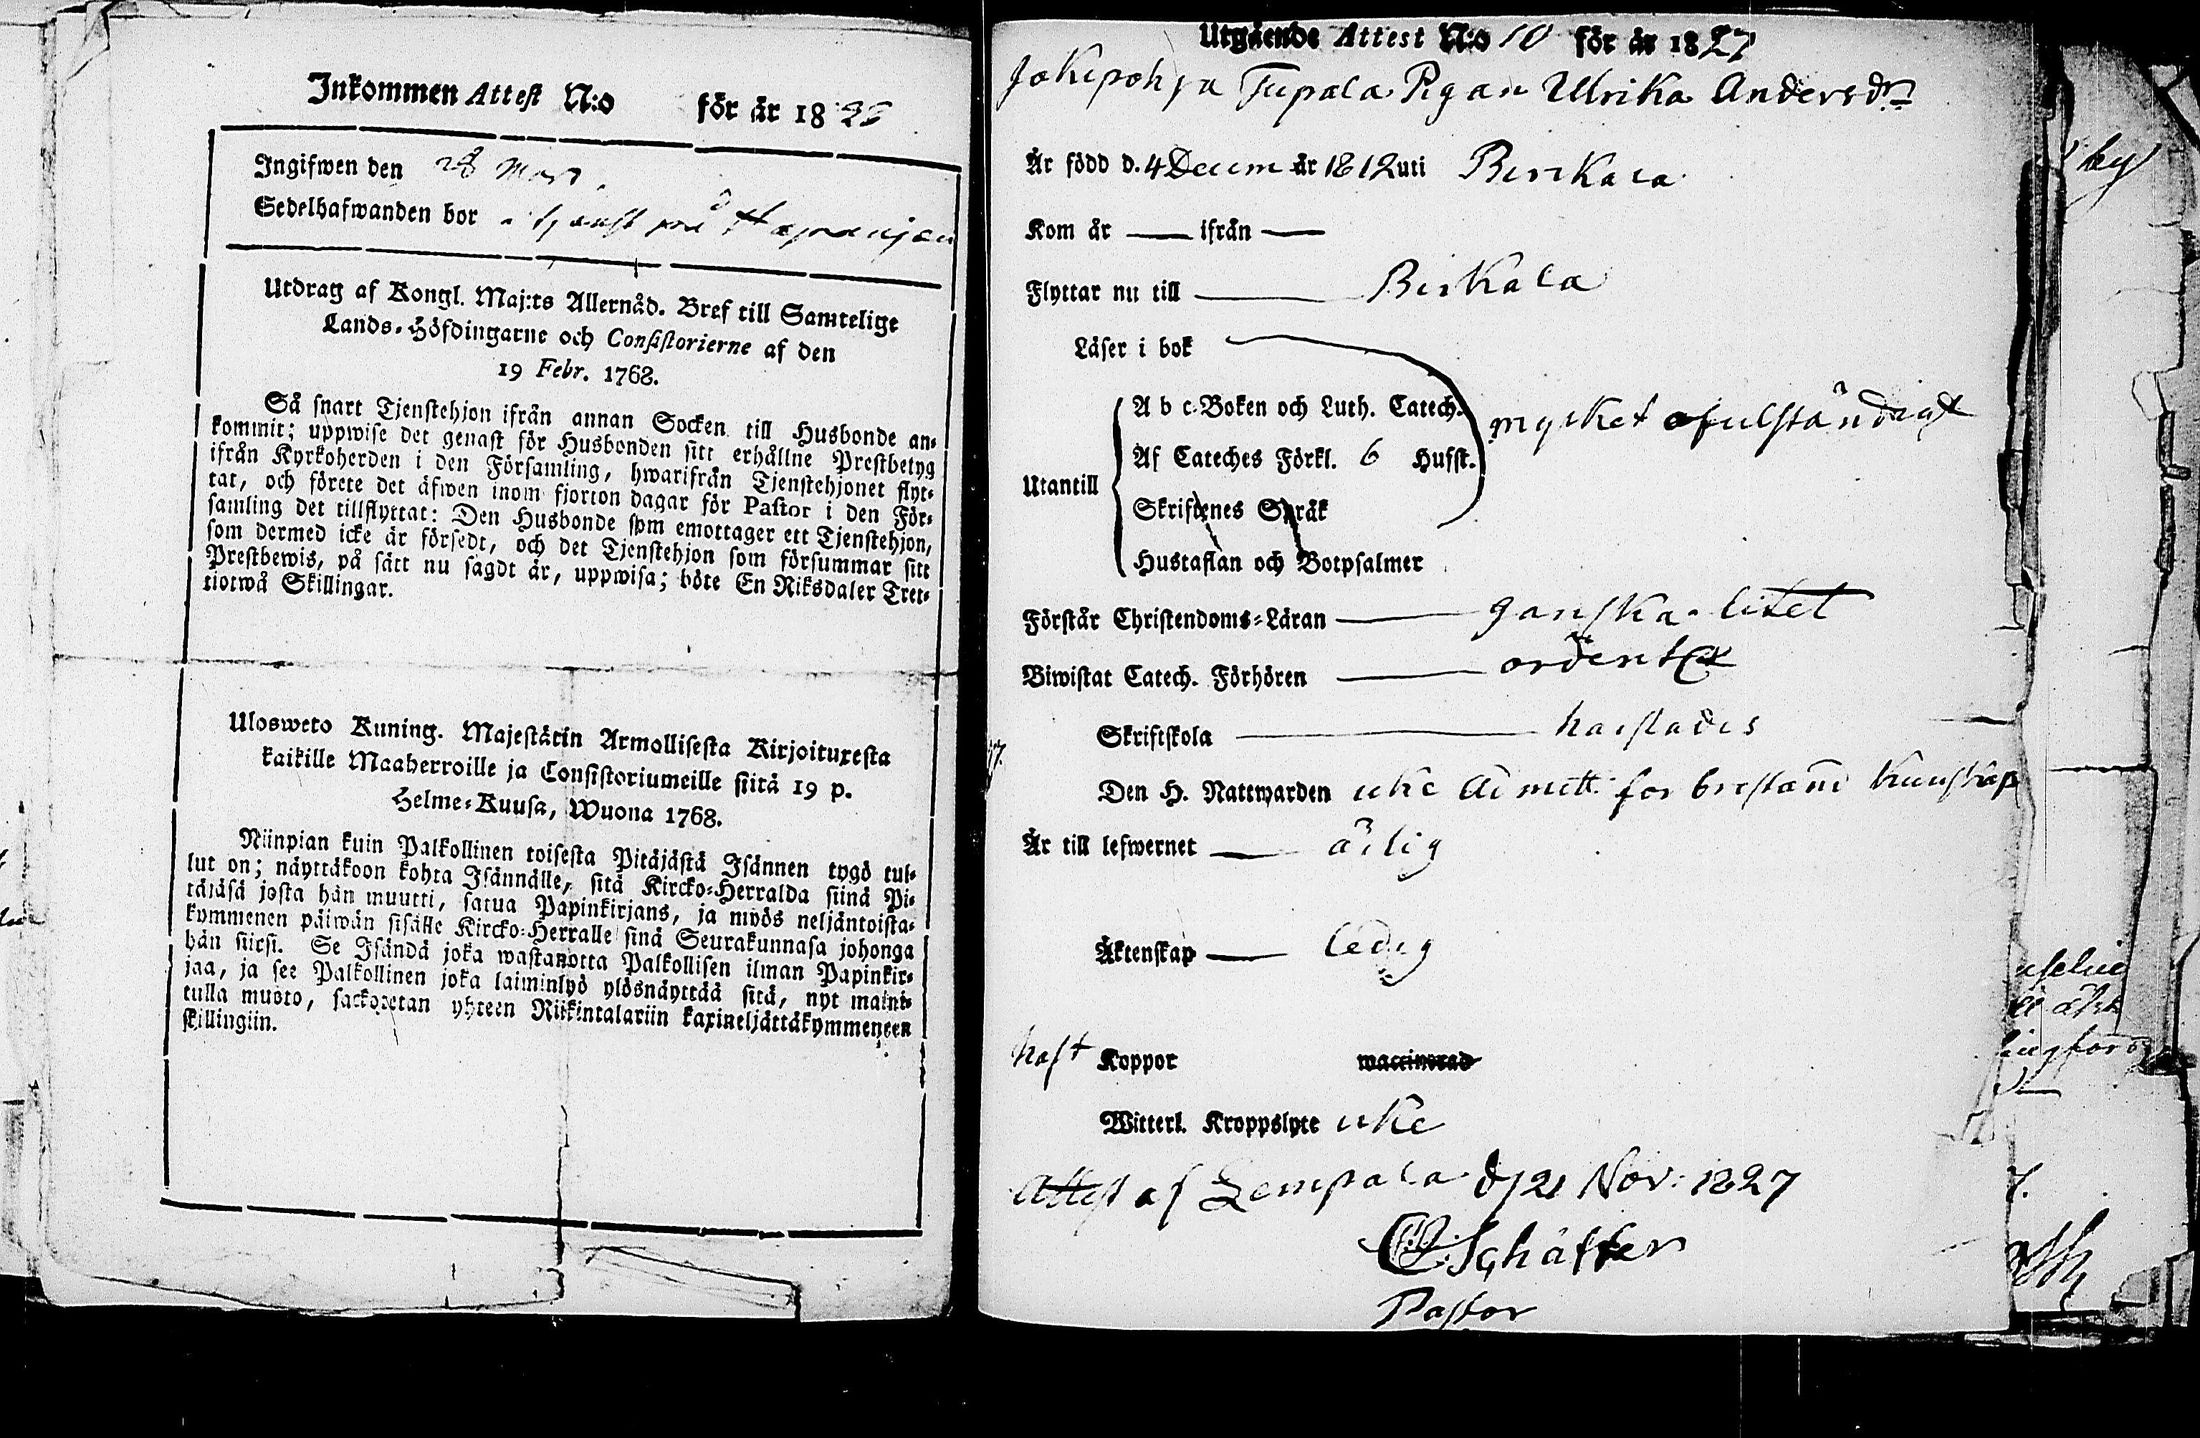 Inkommen Attest N:o för år 18
Ingifwen den 28 Mars.
Sedelhafwanden bor i tjenst på
Utdrag af Kongl. Maj:ts Allernåd. Bref till Samtelige
Lands-Höfdingarne och Consistorierne af den
19 Febr. 1768.
Så snart Tjenstehjon ifrån annan Socken till Husbonde an-
kommit; uppwise det genast för Husbonden sitt erhållne Prestbetyg
ifrån Kyrkoherden i den Församling, hwarifrån Tjenstehjonet flyt-
tat, och förete det äfwen inom fjorton dagar för Pastor i den För-
samling det tillflyttat: Den Husbonde som emottager ett Tjenstehjon,
som dermed icke är försedt, och det Tjenstehjon som försummar sitt
Prestbewis, på sätt nu sagdt är, uppwisa; böte En Riksdaler Tret-
tiotwå Skillingar.
Ulosweto Kuning. Majestätin Armollisesta Kirjoituxesta
kaikille Maaherroille ja Consistoriumeille siitä 19 p.
Helme-Kuusa, Wuona 1768.
Niinpian kuin Palkollinen toisesta Pitäjästä Isännen tygö tul-
lut on; näyttäkoon kohta Isännälle, sitä Kircko-Herralda siinä Pi-
täjäsä josta hän muutti, saatua Papinkirjans, ja myös neljäntoista-
kymmenen päiwän sisälle Kircko-Herralle sinä Seurakunnasa johonga
hän siirsi. Se Isändä joka wastanotta Palkollisen ilman Papinkir-
jaa, ja see Palkollinen joka laiminlyö ylösnäyttää sitä, nyt maini-
tulla muoto, sackotetan yhteen Riikintalariin kaxineljättäkymmeneen
skillingiin.
Utgående Attest N:o 10 för år 1827
Jokipohja Tupala Pigan Ulrika Andersdr
Är född d. 4 Decem år 1812 uti Birkala
Kom år — ifrån —
Flyttar nu till — Birkala
Läser i bok
A b c-Boken och Luth. Catech. mycket ofulständigt
Af Cateches Förkl. 6 Hufst.
Utantill
Skriftenes Språk
Hustaflan och Botpsalmer
Förstår Christendoms-Läran — ganska litet
Biwistat Catech. Förhören — ordentl
Skriftskola —
Den H. Nattwarden icke admitt. for bristand kunskap
Är till lefwernet — ärlig
Äktenskap — ledig
haft Koppor waccinerad
Witterl. Kroppslyte icke
Attest af Lempala d 21 Nov: 1827
Schäffer
Pastor